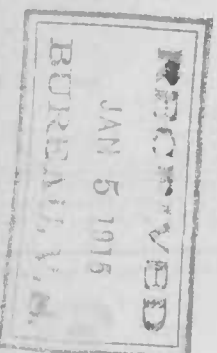 RECEIVED
JAN 5 1916
BUREAU, V. S.